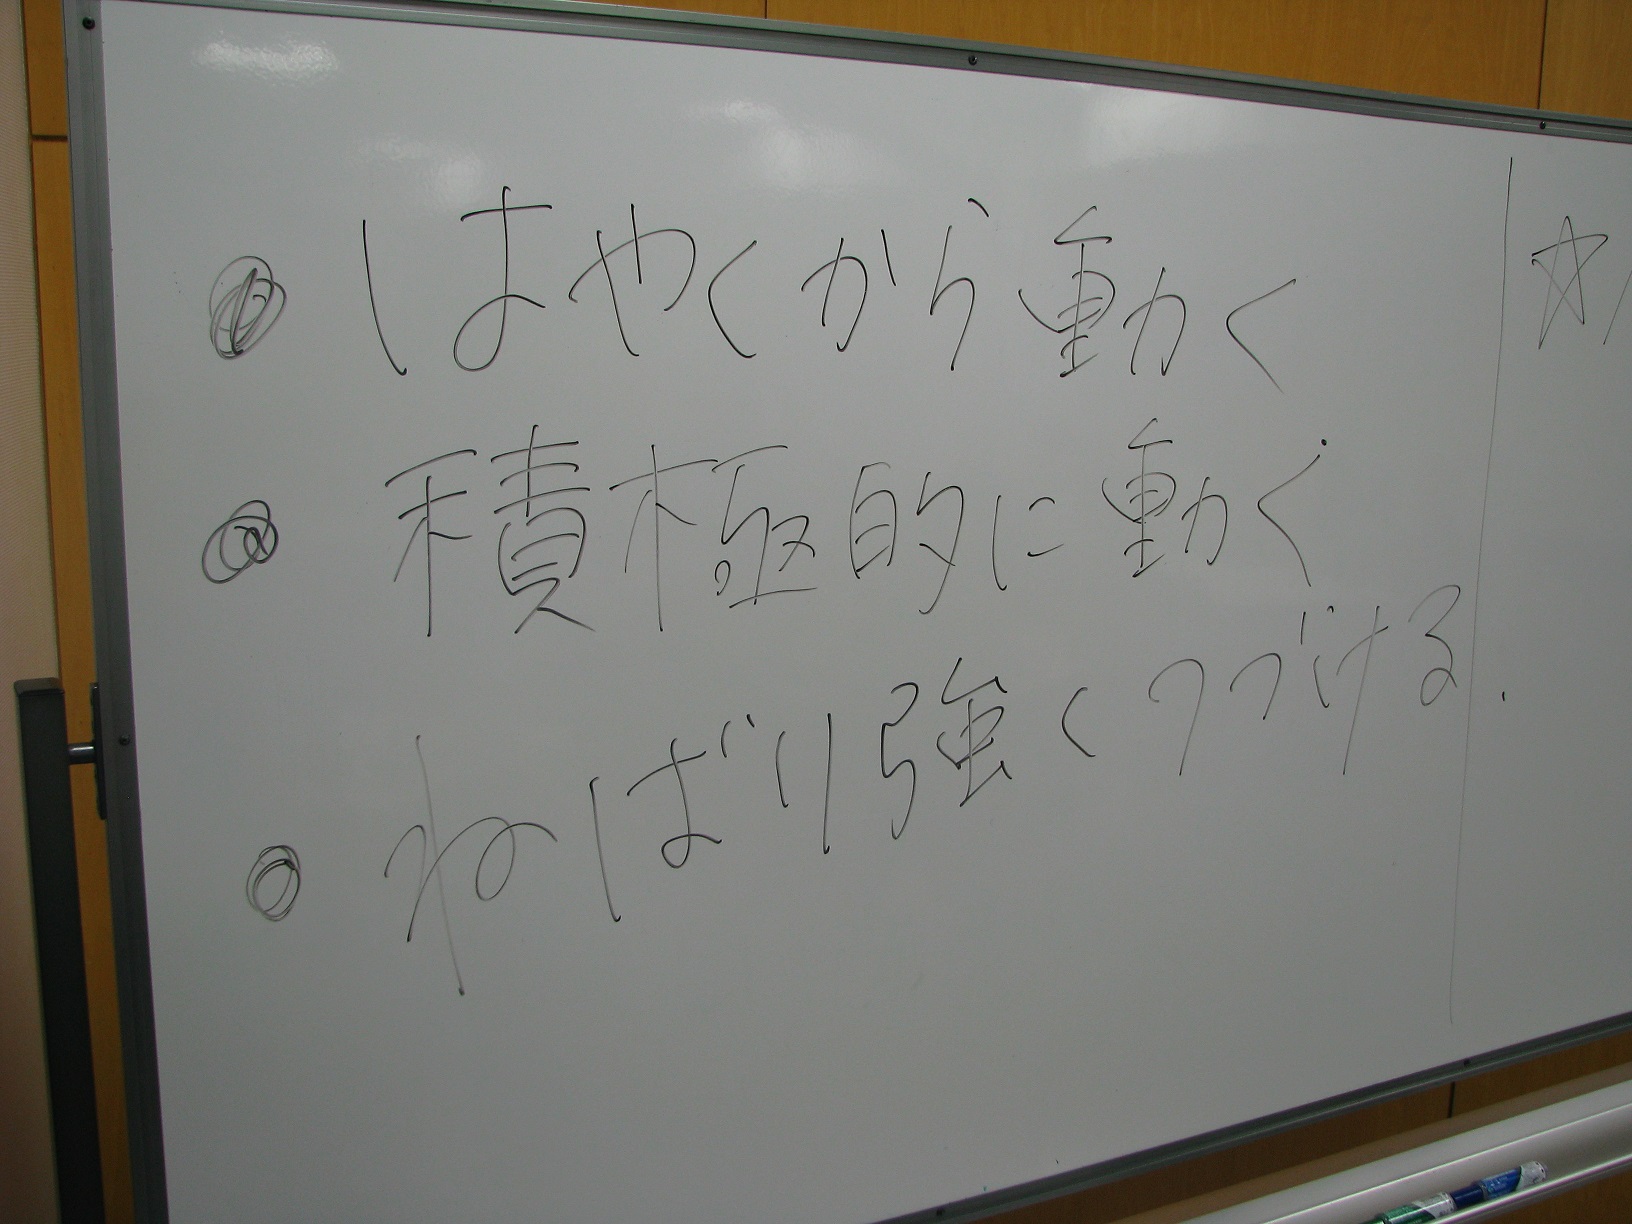 ● はやくから動く
● 積極的に動く
● ねばり強くつづける.
☆